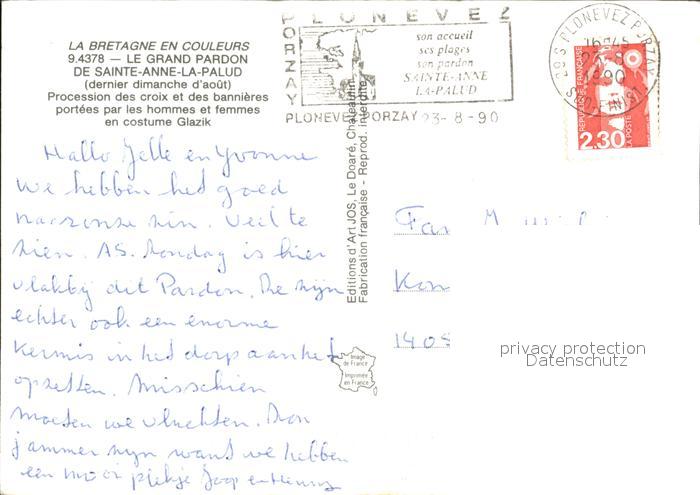 LA BRETAGNE EN COULEURS
9.4378 — LE GRAND PARDON
DE SAINTE-ANNE-LA-PALUD
(dernier dimanche d'août)
Procession des croix et des bannières
portées par les hommes et femmes
en costume Glazik
PLONEVEZ
PORZAY
son accueil
ses plages
son pardon
SAINTE-ANNE
LA-PALUD
PLONEVEZ PORZAY 23-8-90
29S PLONEVEZ PORZAY
16H45
23-8
1990
FINISTERE
REPUBLIQUE FRANÇAISE
LA POSTE
2,30
Hallo Jelle en Yvonne
We hebben het goed
naar onze zin. Veel te
zien. AS. Zondag is hier
vlakbij dit Pardon. Ze zijn
echter ook een enorme
kermis in het dorp aan het
opzetten. Misschien
moeten we vluchten. Zou
jammer zijn want we hebben
een mooi plekje Joop en
Editions d'Art JOS, Le Doaré, Châteaulin
Fabrication française - Reprod. interdite
Image
de France
Imprimée
en France
Fam
Kon
1405
privacy protection
Datenschutz